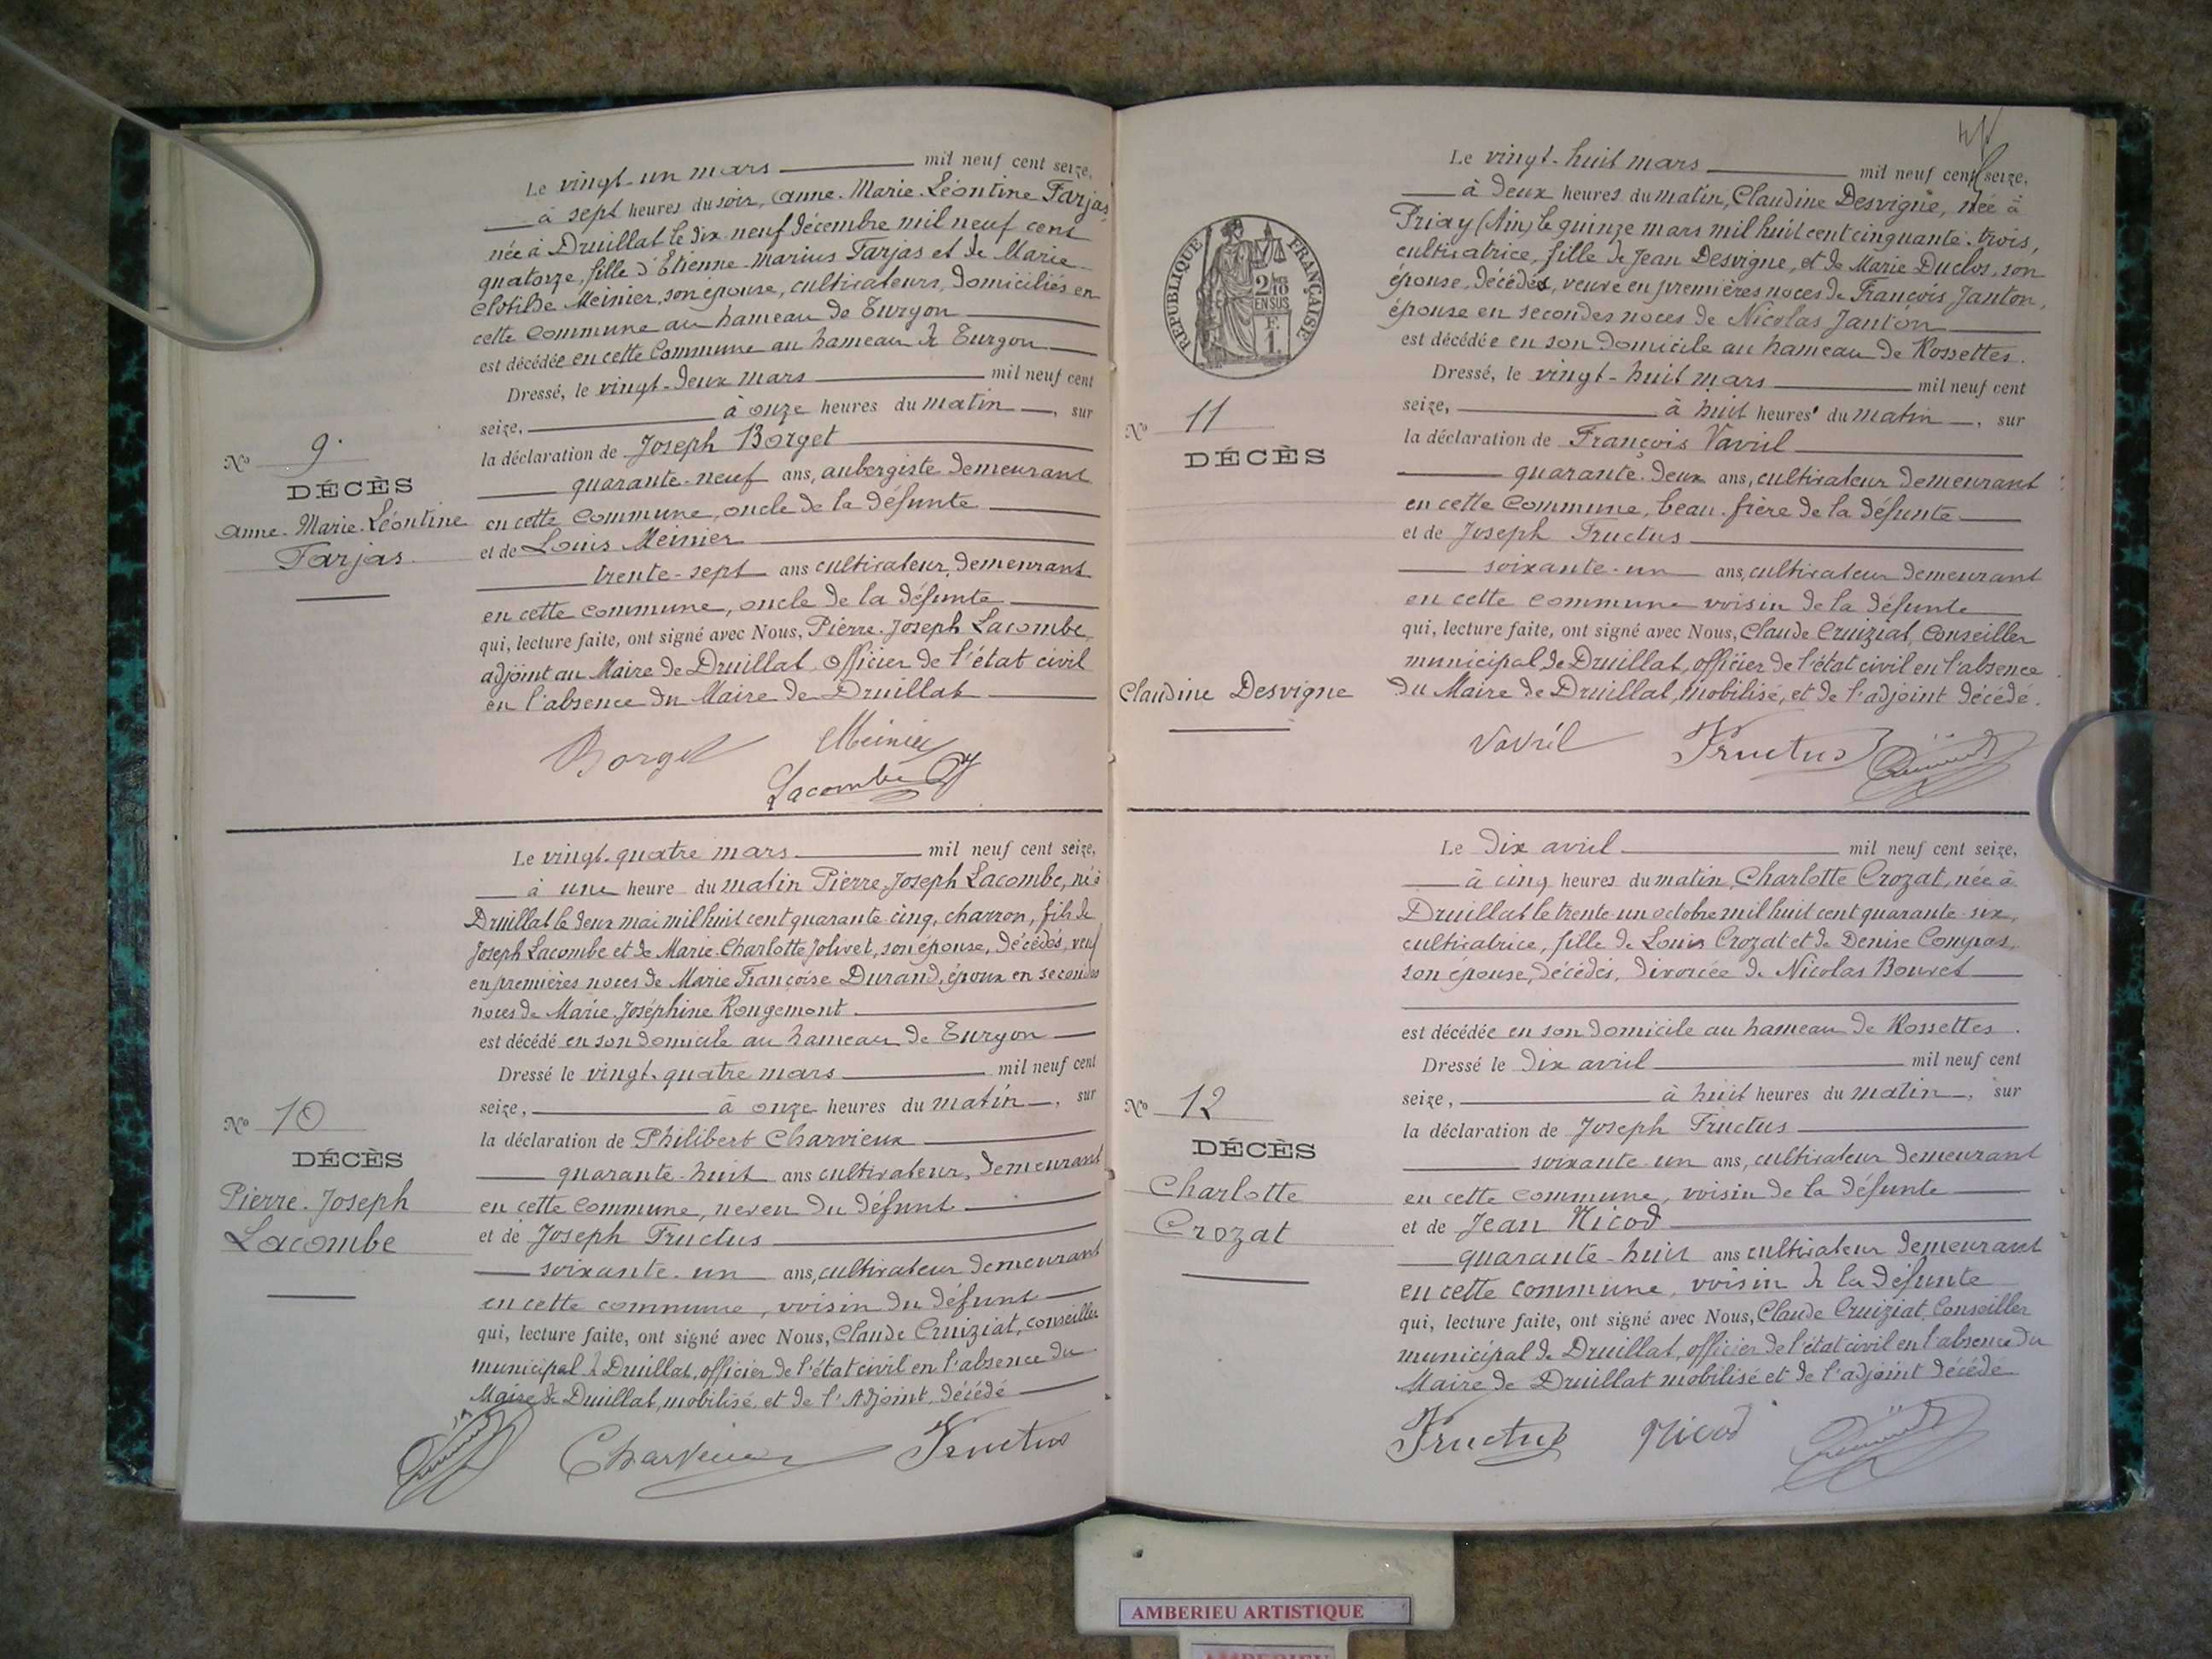 Le vingt-un mars mil neuf cent seize,
à sept heures du soir, Anne-Marie-Léontine Farjas
née à Druillat le dix-neuf décembre mil neuf cent
quatorze, fille d'Etienne-Marius Farjas et de Marie
Clotilde Meinier, son épouse, cultivateurs, domiciliés en
cette commune au hameau de Turgon
est décédée en cette Commune au hameau de Turgon
Dressé, le vingt-deux mars mil neuf cent
seize, à onze heures du matin, sur
la déclaration de Joseph Borget
quarante-neuf ans, aubergiste demeurant
en cette commune, oncle de la défunte
et de Louis Meinier
trente-sept ans cultivateur, demeurant
en cette commune, oncle de la défunte
qui, lecture faite, ont signé avec Nous, Pierre-Joseph Lacombe,
adjoint au Maire de Druillat, Officier de l'état civil
en l'absence du Maire de Druillat
No 9.
DÉCÈS
Anne-Marie-Léontine
Farjas
Borget Meinier
Lacombe
Le vingt-quatre mars mil neuf cent seize,
à une heure du matin Pierre-Joseph Lacombe, né à
Druillat le deux mai mil huit cent quarante-cinq, charron, fils de
Joseph Lacombe et de Marie-Charlotte Jolivet, son épouse, décédés, veuf
en premières noces de Marie Françoise Durand, époux en secondes
noces de Marie-Joséphine Rougemont
est décédé en son domicile au hameau de Turgon
Dressé le vingt-quatre mars mil neuf cent
seize, à onze heures du matin, sur
la déclaration de Philibert Charvieux
quarante-huit ans cultivateur, demeurant
en cette commune, neveu du défunt
et de Joseph Fructus
soixante-un ans, cultivateur demeurant
en cette commune, voisin du défunt
qui, lecture faite, ont signé avec Nous, Claude Cruiziat, conseiller
municipal de Druillat, officier de l'état civil en l'absence du
Maire de Druillat, mobilisé, et de l'Adjoint, décédé
No 10
DÉCÈS
Pierre-Joseph
Lacombe
Charvieux Fructus
Le vingt-huit mars mil neuf cent seize,
à deux heures du matin, Claudine Desvigne, née à
Priay (Ain) le quinze mars mil huit cent cinquante-trois,
cultivatrice, fille de Jean Desvigne, et de Marie Duclos, son
épouse, décédés, veuve en premières noces de François Janton,
épouse en secondes noces de Nicolas Janton
est décédée en son domicile au hameau de Rossettes.
Dressé, le vingt-huit mars mil neuf cent
seize, à huit heures du matin, sur
la déclaration de François Vavril
quarante-deux ans, cultivateur demeurant
en cette commune, beau-frère de la défunte
et de Joseph Fructus
soixante-un ans, cultivateur demeurant
en cette commune voisin de la défunte
qui, lecture faite, ont signé avec Nous, Claude Cruiziat, Conseiller
municipal de Druillat, officier de l'état civil en l'absence
du Maire de Druillat, mobilisé, et de l'adjoint décédé.
REPUBLIQUE FRANÇAISE
2/10
EN SUS
F.
1.
No 11
DÉCÈS
Claudine Desvigne
Vavril Fructus
Le dix avril mil neuf cent seize,
à cinq heures du matin, Charlotte Crozat, née à
Druillat le trente-un octobre mil huit cent quarante-six,
cultivatrice, fille de Louis Crozat et de Denise Compas,
son épouse, décédés, divorcée de Nicolas Bouvet
est décédée en son domicile au hameau de Rossettes.
Dressé le dix avril mil neuf cent
seize, à huit heures du matin, sur
la déclaration de Joseph Fructus
soixante-un ans, cultivateur demeurant
en cette commune, voisin de la défunte
et de Jean Nicod
quarante-huit ans cultivateur demeurant
en cette commune, voisin de la défunte
qui, lecture faite, ont signé avec Nous, Claude Cruiziat, Conseiller
municipal de Druillat, officier de l'état civil en l'absence du
Maire de Druillat mobilisé et de l'adjoint décédé
No 12
DÉCÈS
Charlotte
Crozat
Fructus Nicod
AMBERIEU ARTISTIQUE
AMBERIEU